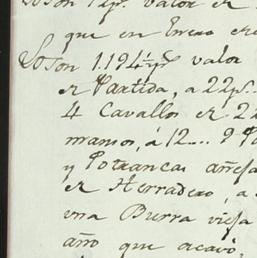 Son 12 ps. valor de
que en Enero de
Son 1.194 ps. valor
de Partida, a 22 ps.
4 Cavallos de 22
mansos, á 12... 9 Po
y Potrancas añeja
de Herradero, a
una Burra vieja
año que acavó,